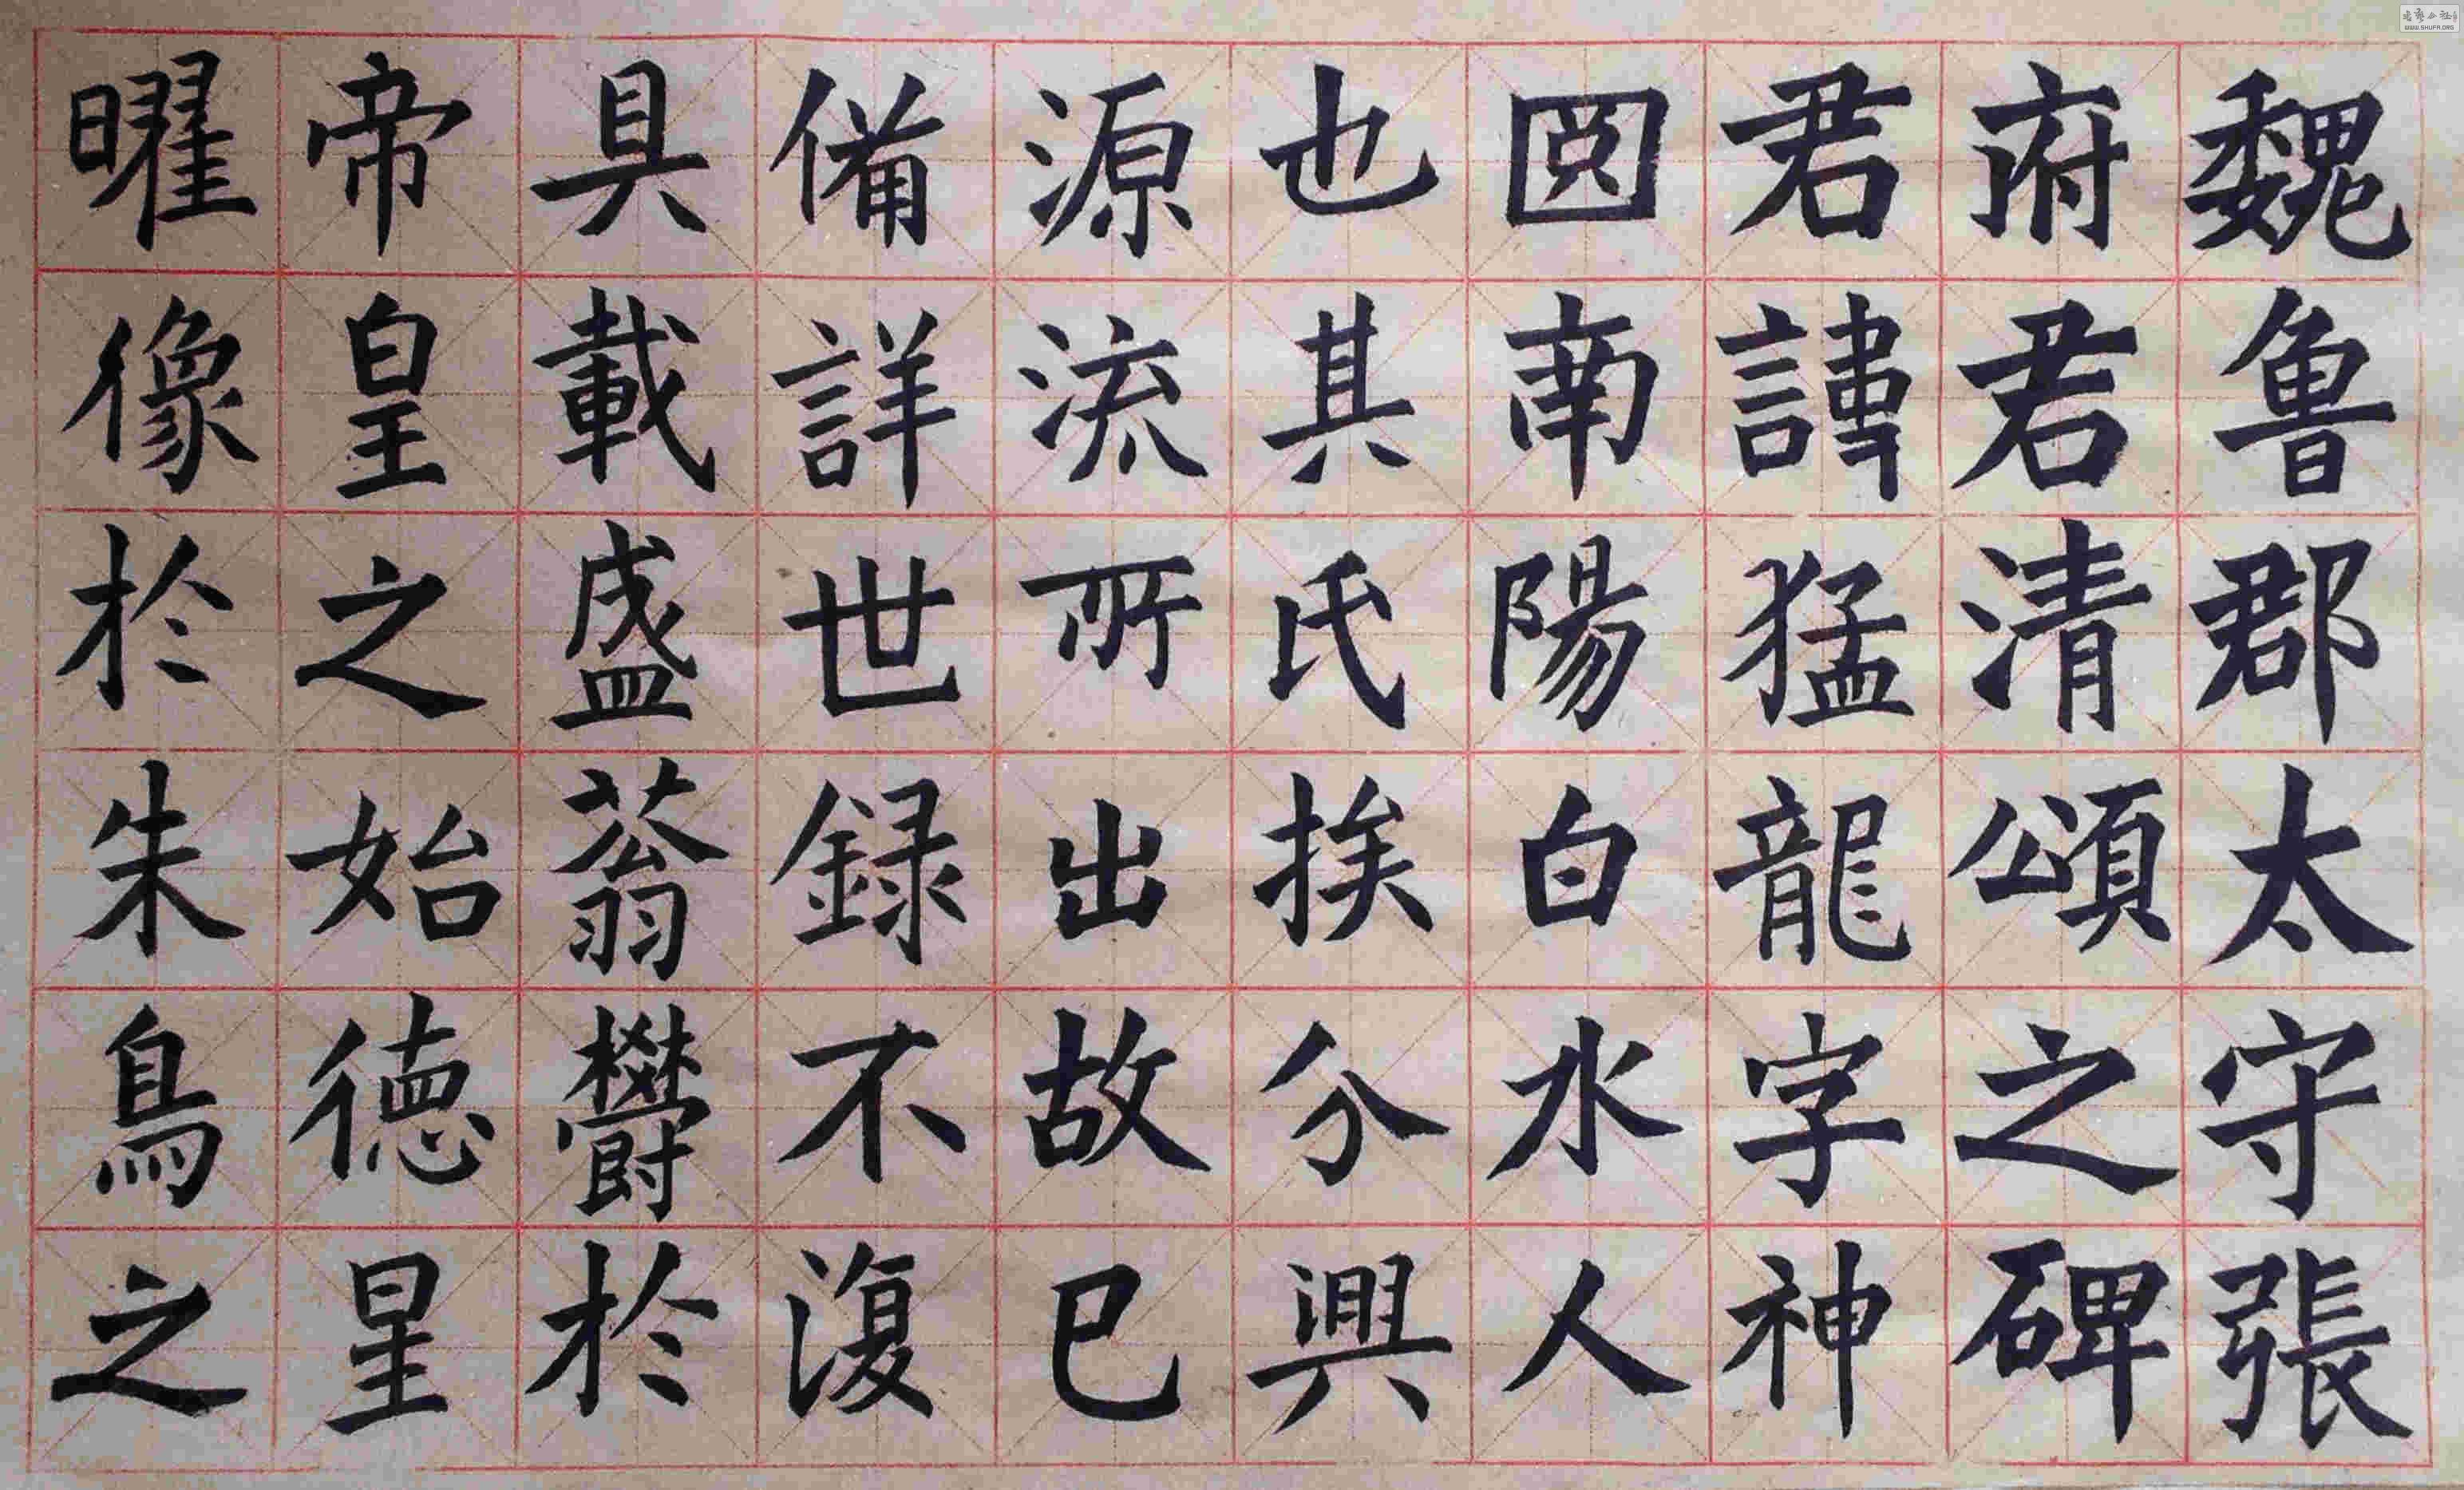 魏魯郡太守張
府君清頌之碑
君諱猛龍字神
圀南陽白水人
也其氏挨分興
源流所出故已
備詳世録不復
具載盛蓊欝於
帝皇之始德星
曜像於朱鳥之
WWW.SHUFR.ORG